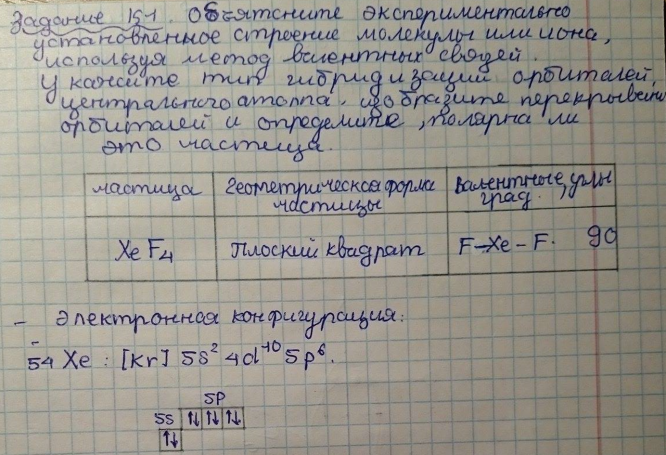 Задание 151. Объясните экспериментально
установленное строение молекулы или иона,
используя метод валентных связей.
Укажите тип гибридизации орбиталей,
центрального атома. изобразите перекрывани
орбиталей и определите, полярна ли
это частица.
частица геометрическая форма частицы валентные углы, град.
XeF₄ плоский квадрат F-Xe-F. 90
- Электронная конфигурация:
54 Xe : [Kr] 5s² 4d¹⁰ 5p⁶.
5p
5s ↑↓ ↑↓ ↑↓
↑↓